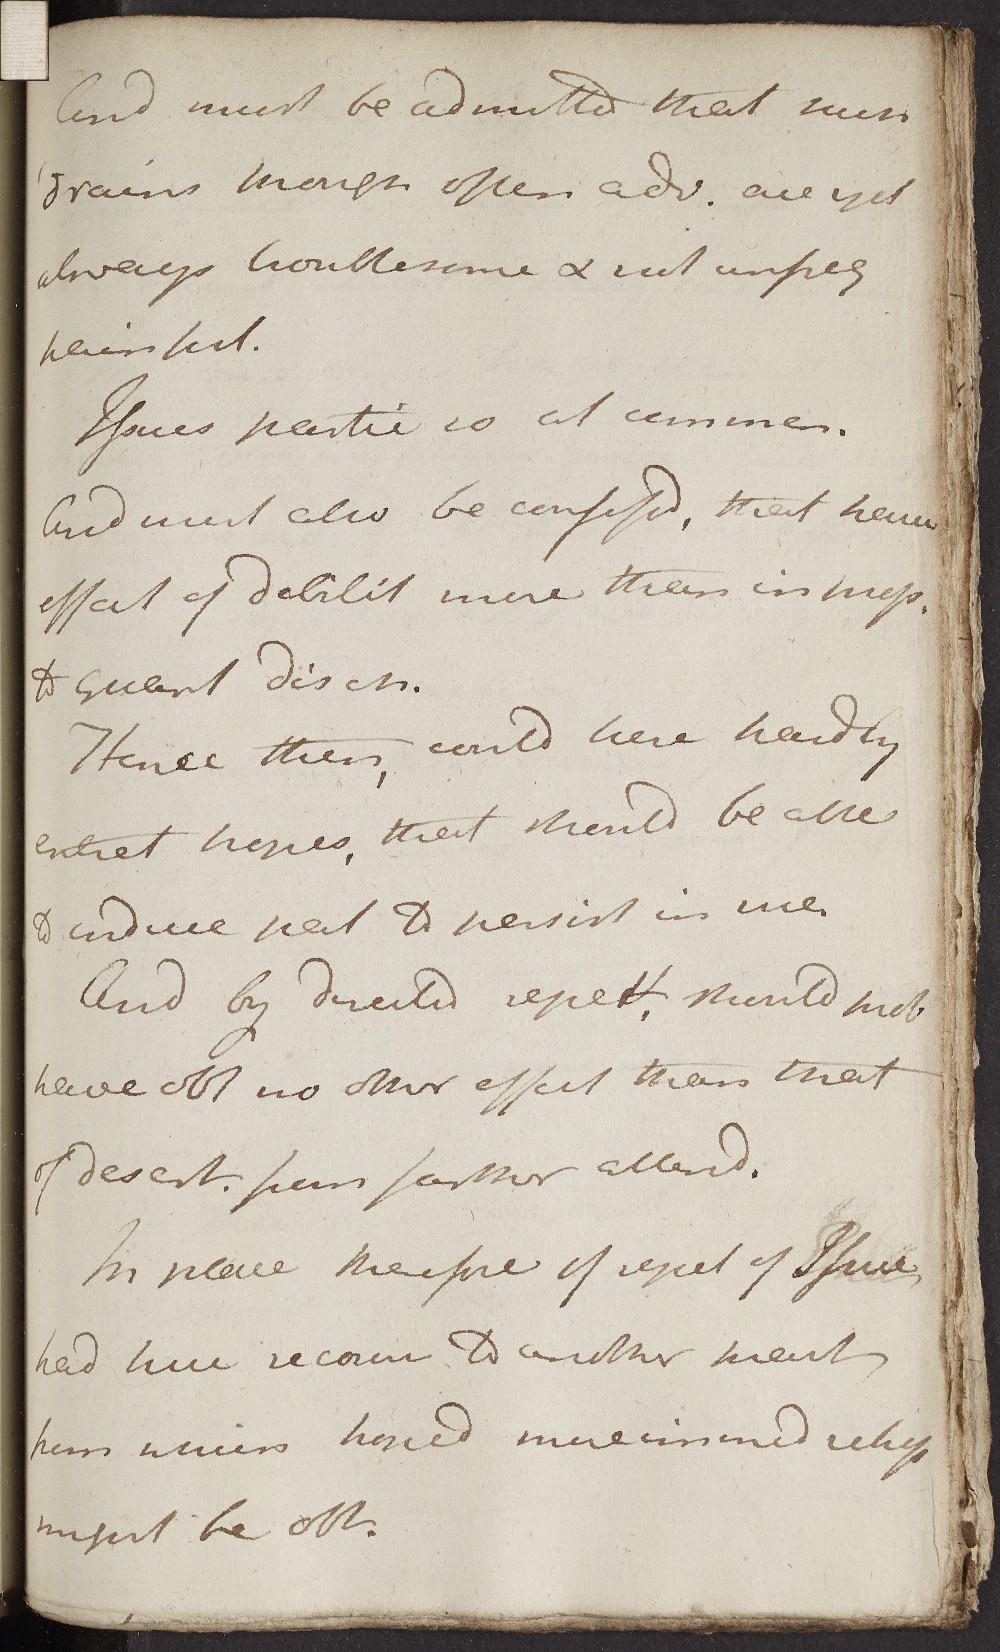 And must be admitted that such
drains though often adv. are yet
always troublesome & not unfreq
painful.
Issues partic so at commen.
And must also be confessed, that have
effect of debilit more than in prop.
to quant disch.
Hence then, could here hardly
entret hopes, that should be able
to induce pat to persist in use
And by directed repett, should prob
have obt no other effect than that
of desert. from farther attend.
In place therefore of repet of Issue,
had here recour to another meast
from which hoped more immed relief
might be obt.